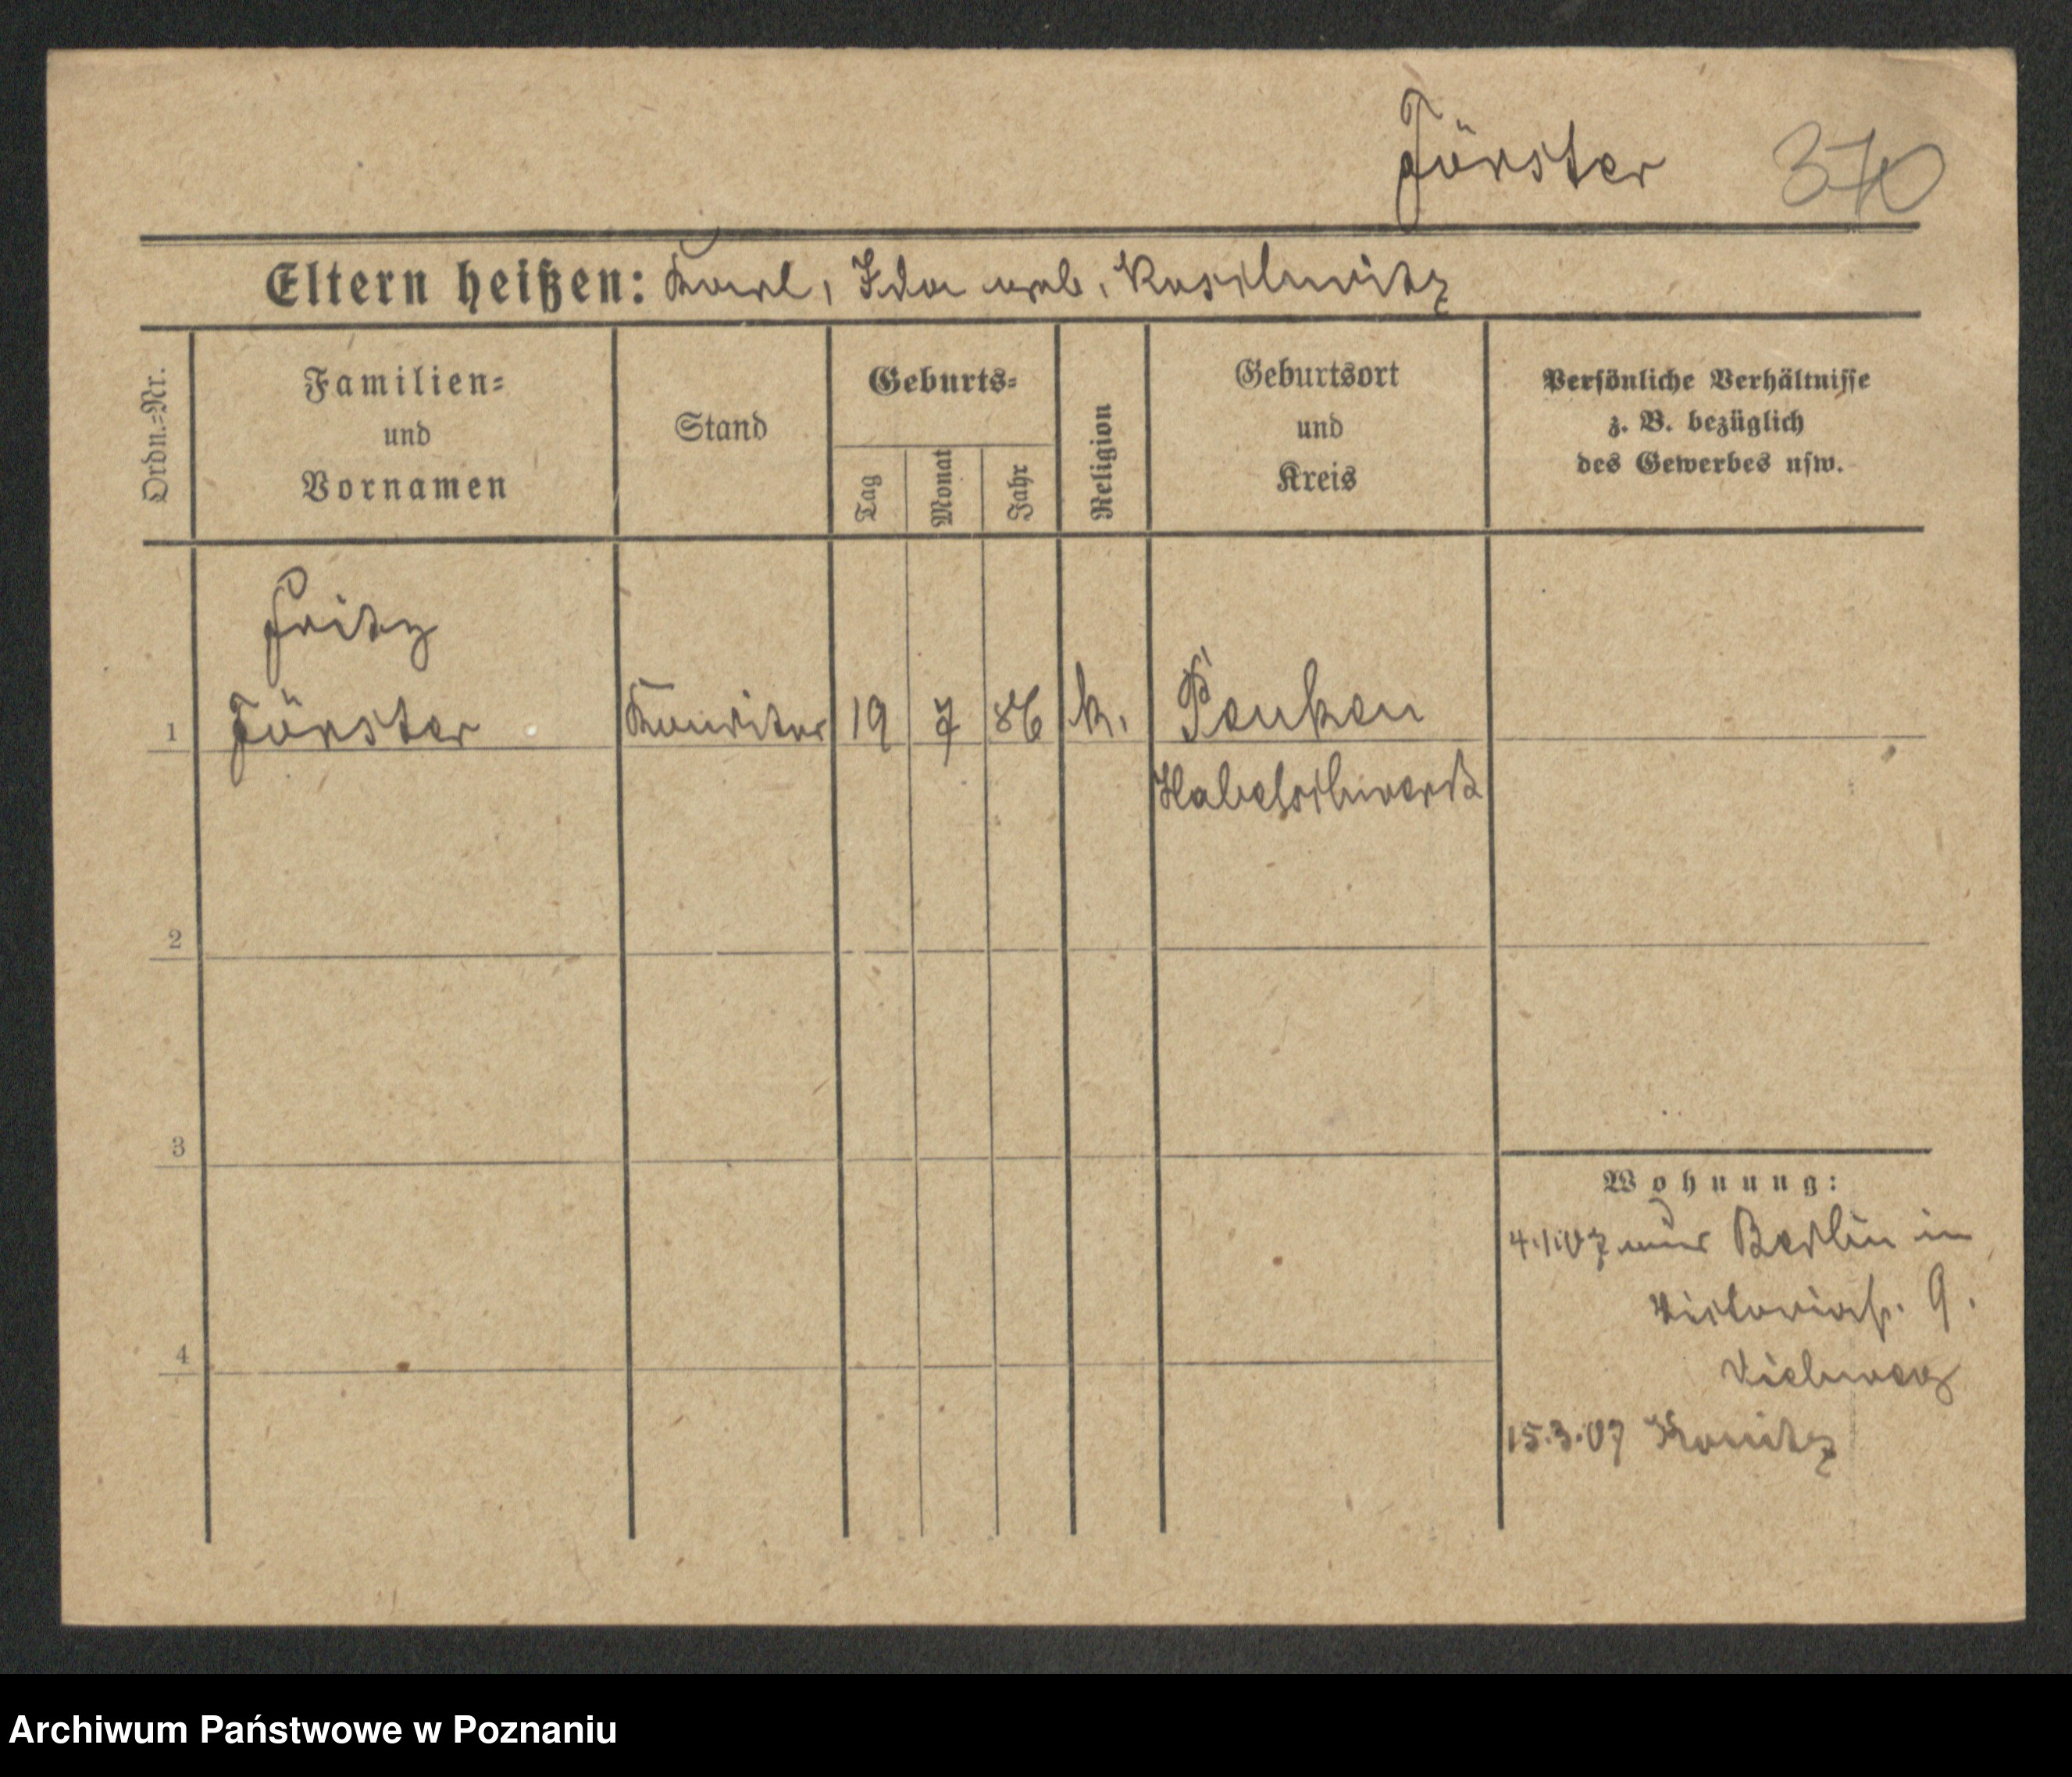 Förster 370
Eltern heißen: Karl, Ida geb. Koschwitz
Ordn.=Nr.
Familien=
und
Vornamen
Stand
Geburts=
Tag
Monat
Jahr
Religion
Geburtsort
und
Kreis
Persönliche Verhältnisse
z. B. bezüglich
des Gewerbes usw.
Fritz
1 Förster Konditor 19 7 86 k. Penken
Habelschwerdt
2
3
4
Wohnung:
4.1.07 aus Berlin in
Victoriastr. 9.
Viehweg
15.3.07 Konitz
Archiwum Państwowe w Poznaniu